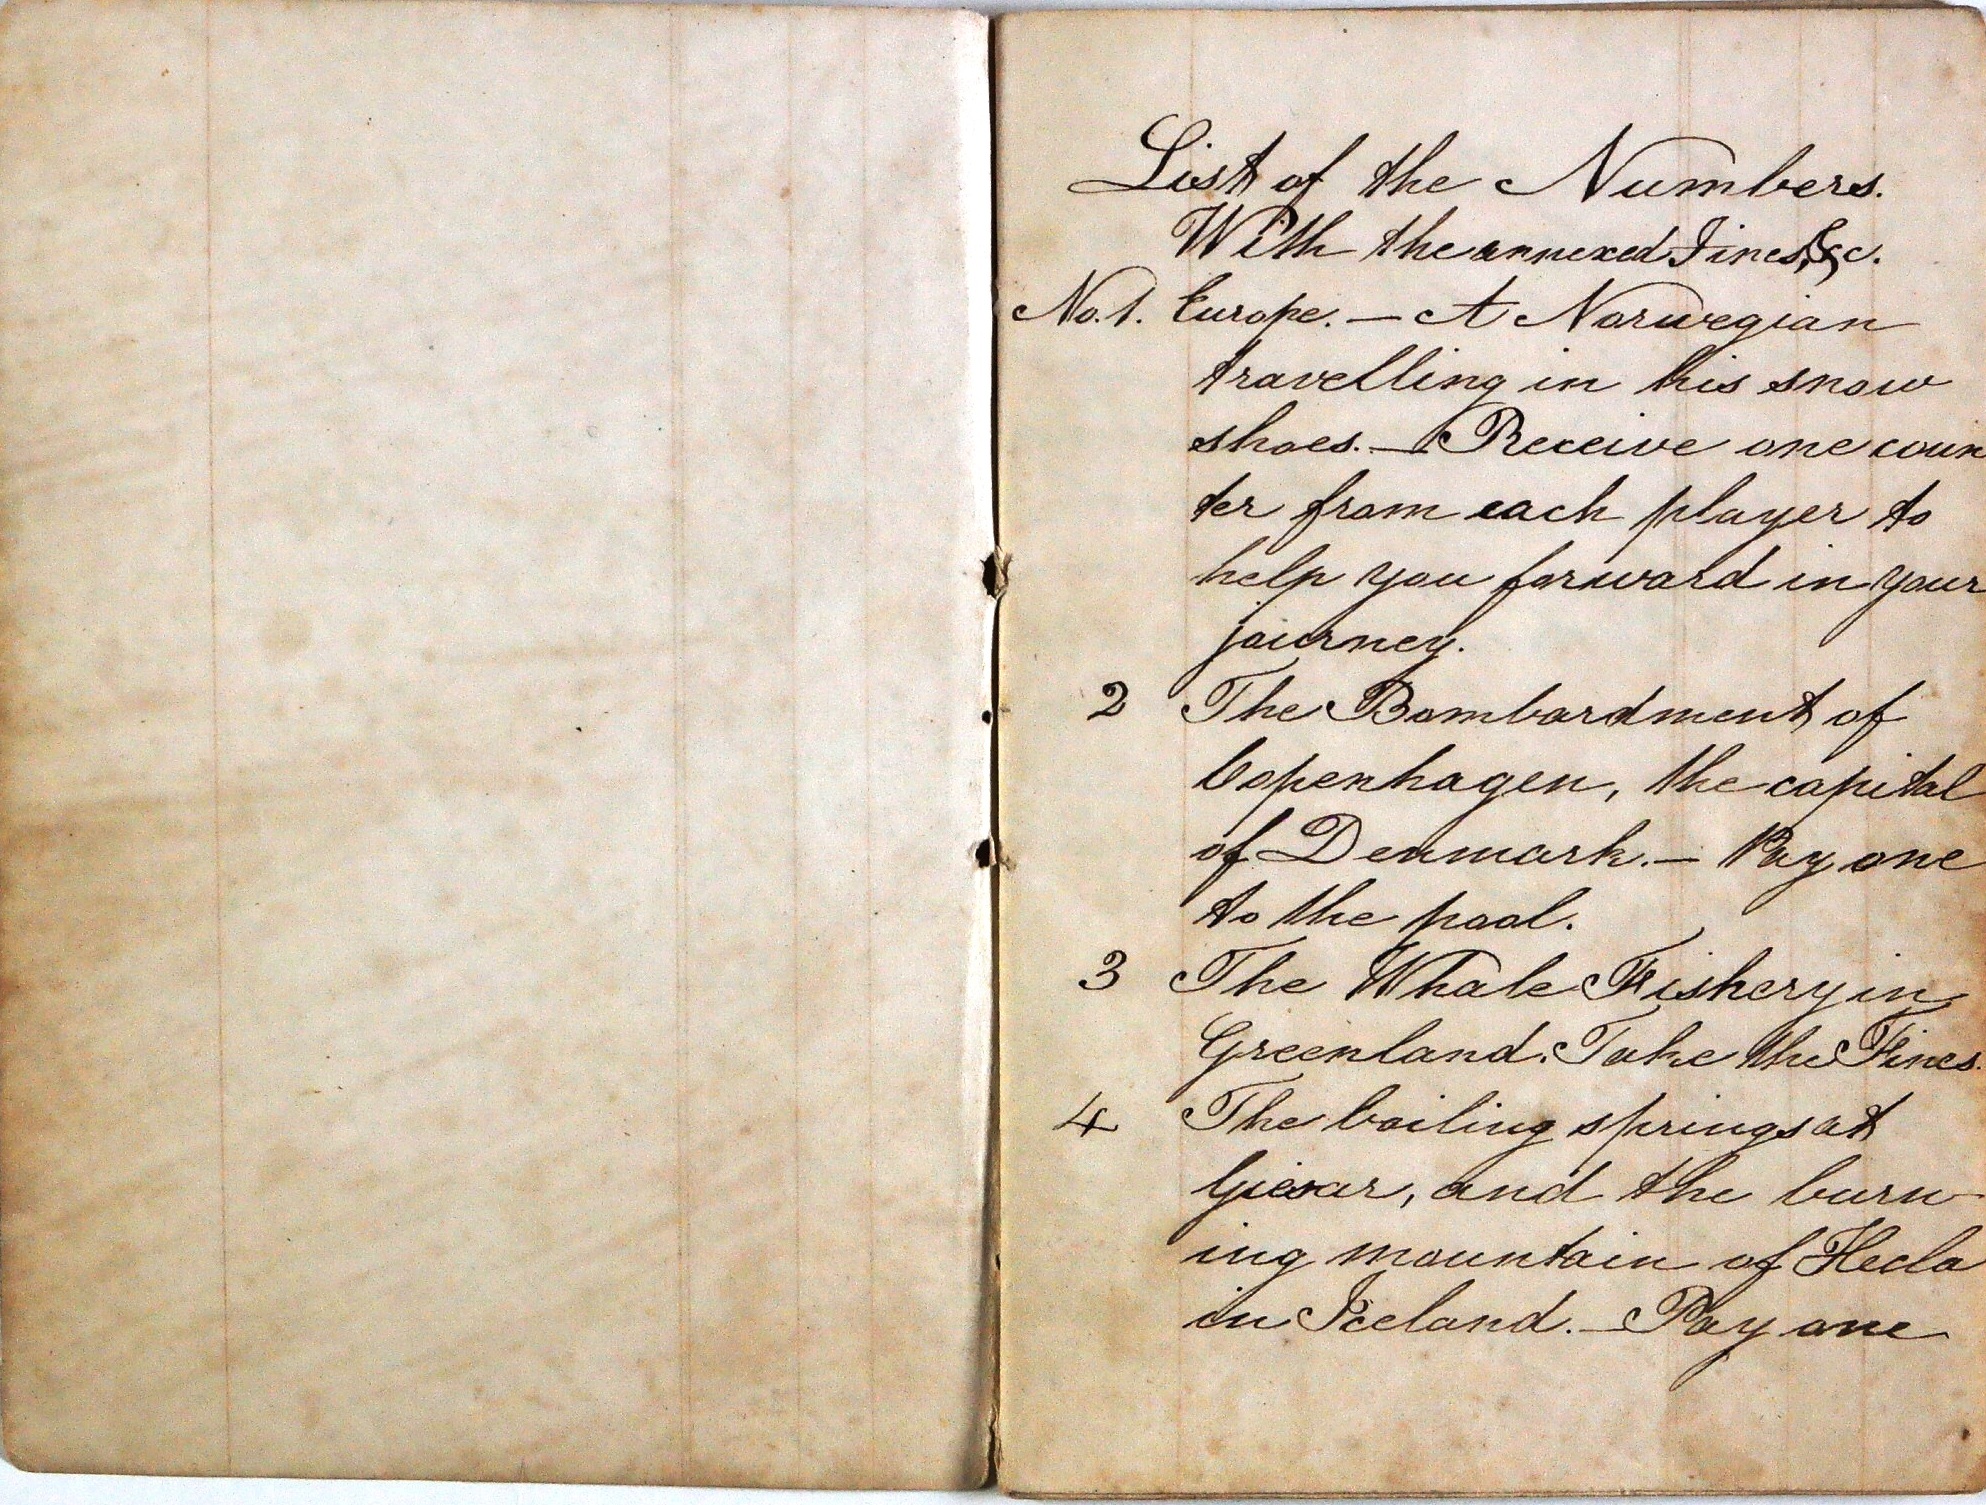 List of the Numbers.
With the annexed Fines, &c.
No. 1. Europe. — A Norwegian
travelling in his snow
shoes. — Receive one coun
ter from each player to
help you forward in your
journey.
2 The Bombardment of
Copenhagen, the capital
of Denmark. — Pay one
to the pool.
3 The Whale Fishery in
Greenland. Take the Fines.
4 The boiling springs at
Giesar, and the burn
ing mountain of Hecla
in Iceland. — Pay one